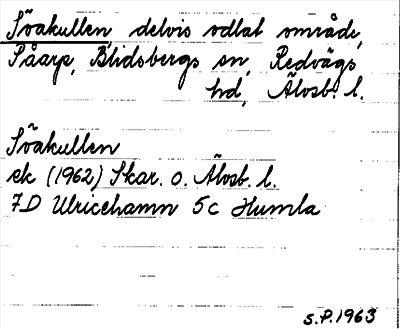 Svakullen, delvis odlat område,
Påarp, Blidsbergs sn, Redvägs
hd, Älvsb. l.
Svakullen
ek (1962) Skar. o. Älvsb. l.
7D Ulricehamn 5c Humla
S.P. 1963